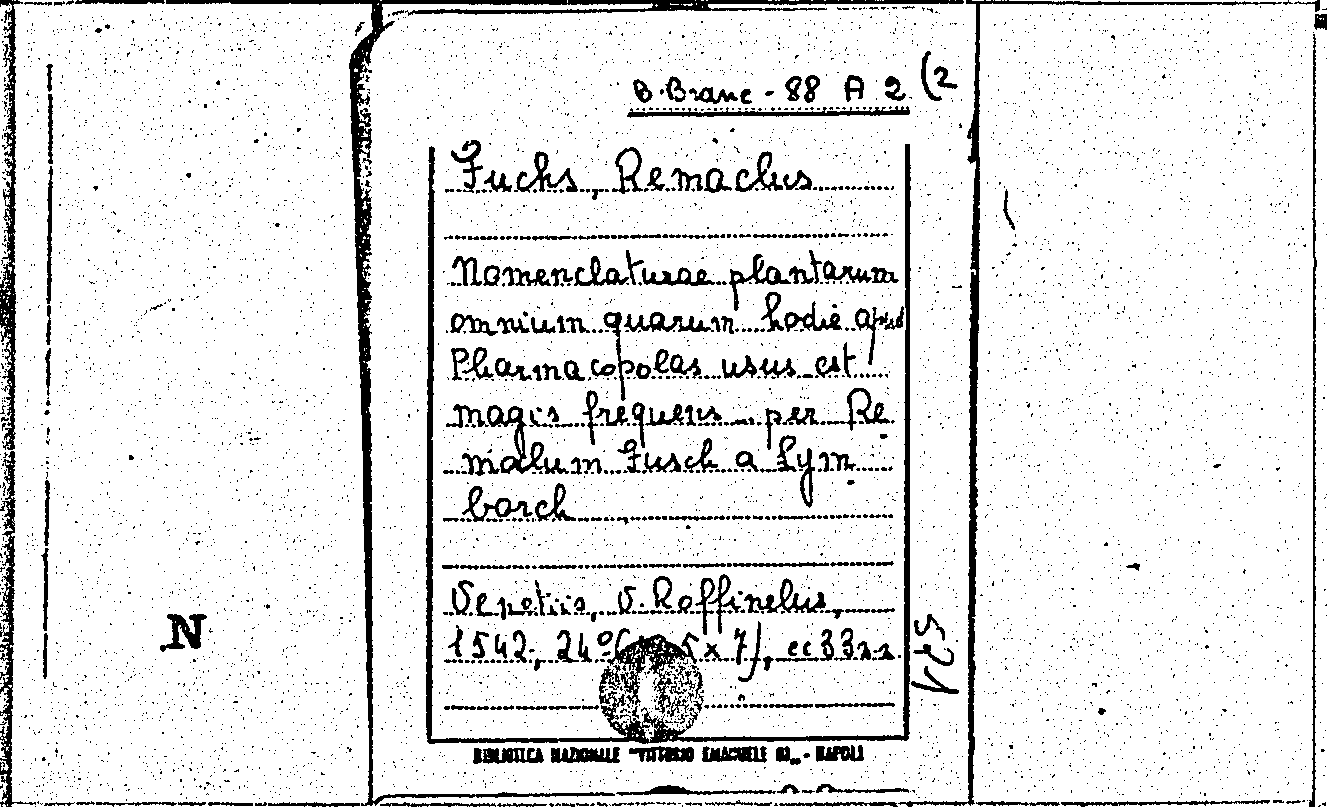 B. Branc - 88 A 2 (2
Fuchs, Remaclus
Nomenclaturae plantarum
omnium quarum hodie apud
Pharmacopolas usus est
magis frequens per Re
malum Fusch a Lym
borch
Venetiis, V. Roffinelus,
1542, 24° 5 x 7),
N
BIBLIOTECA NAZIONALE "VITTORIO EMANUELE III" - NAPOLI